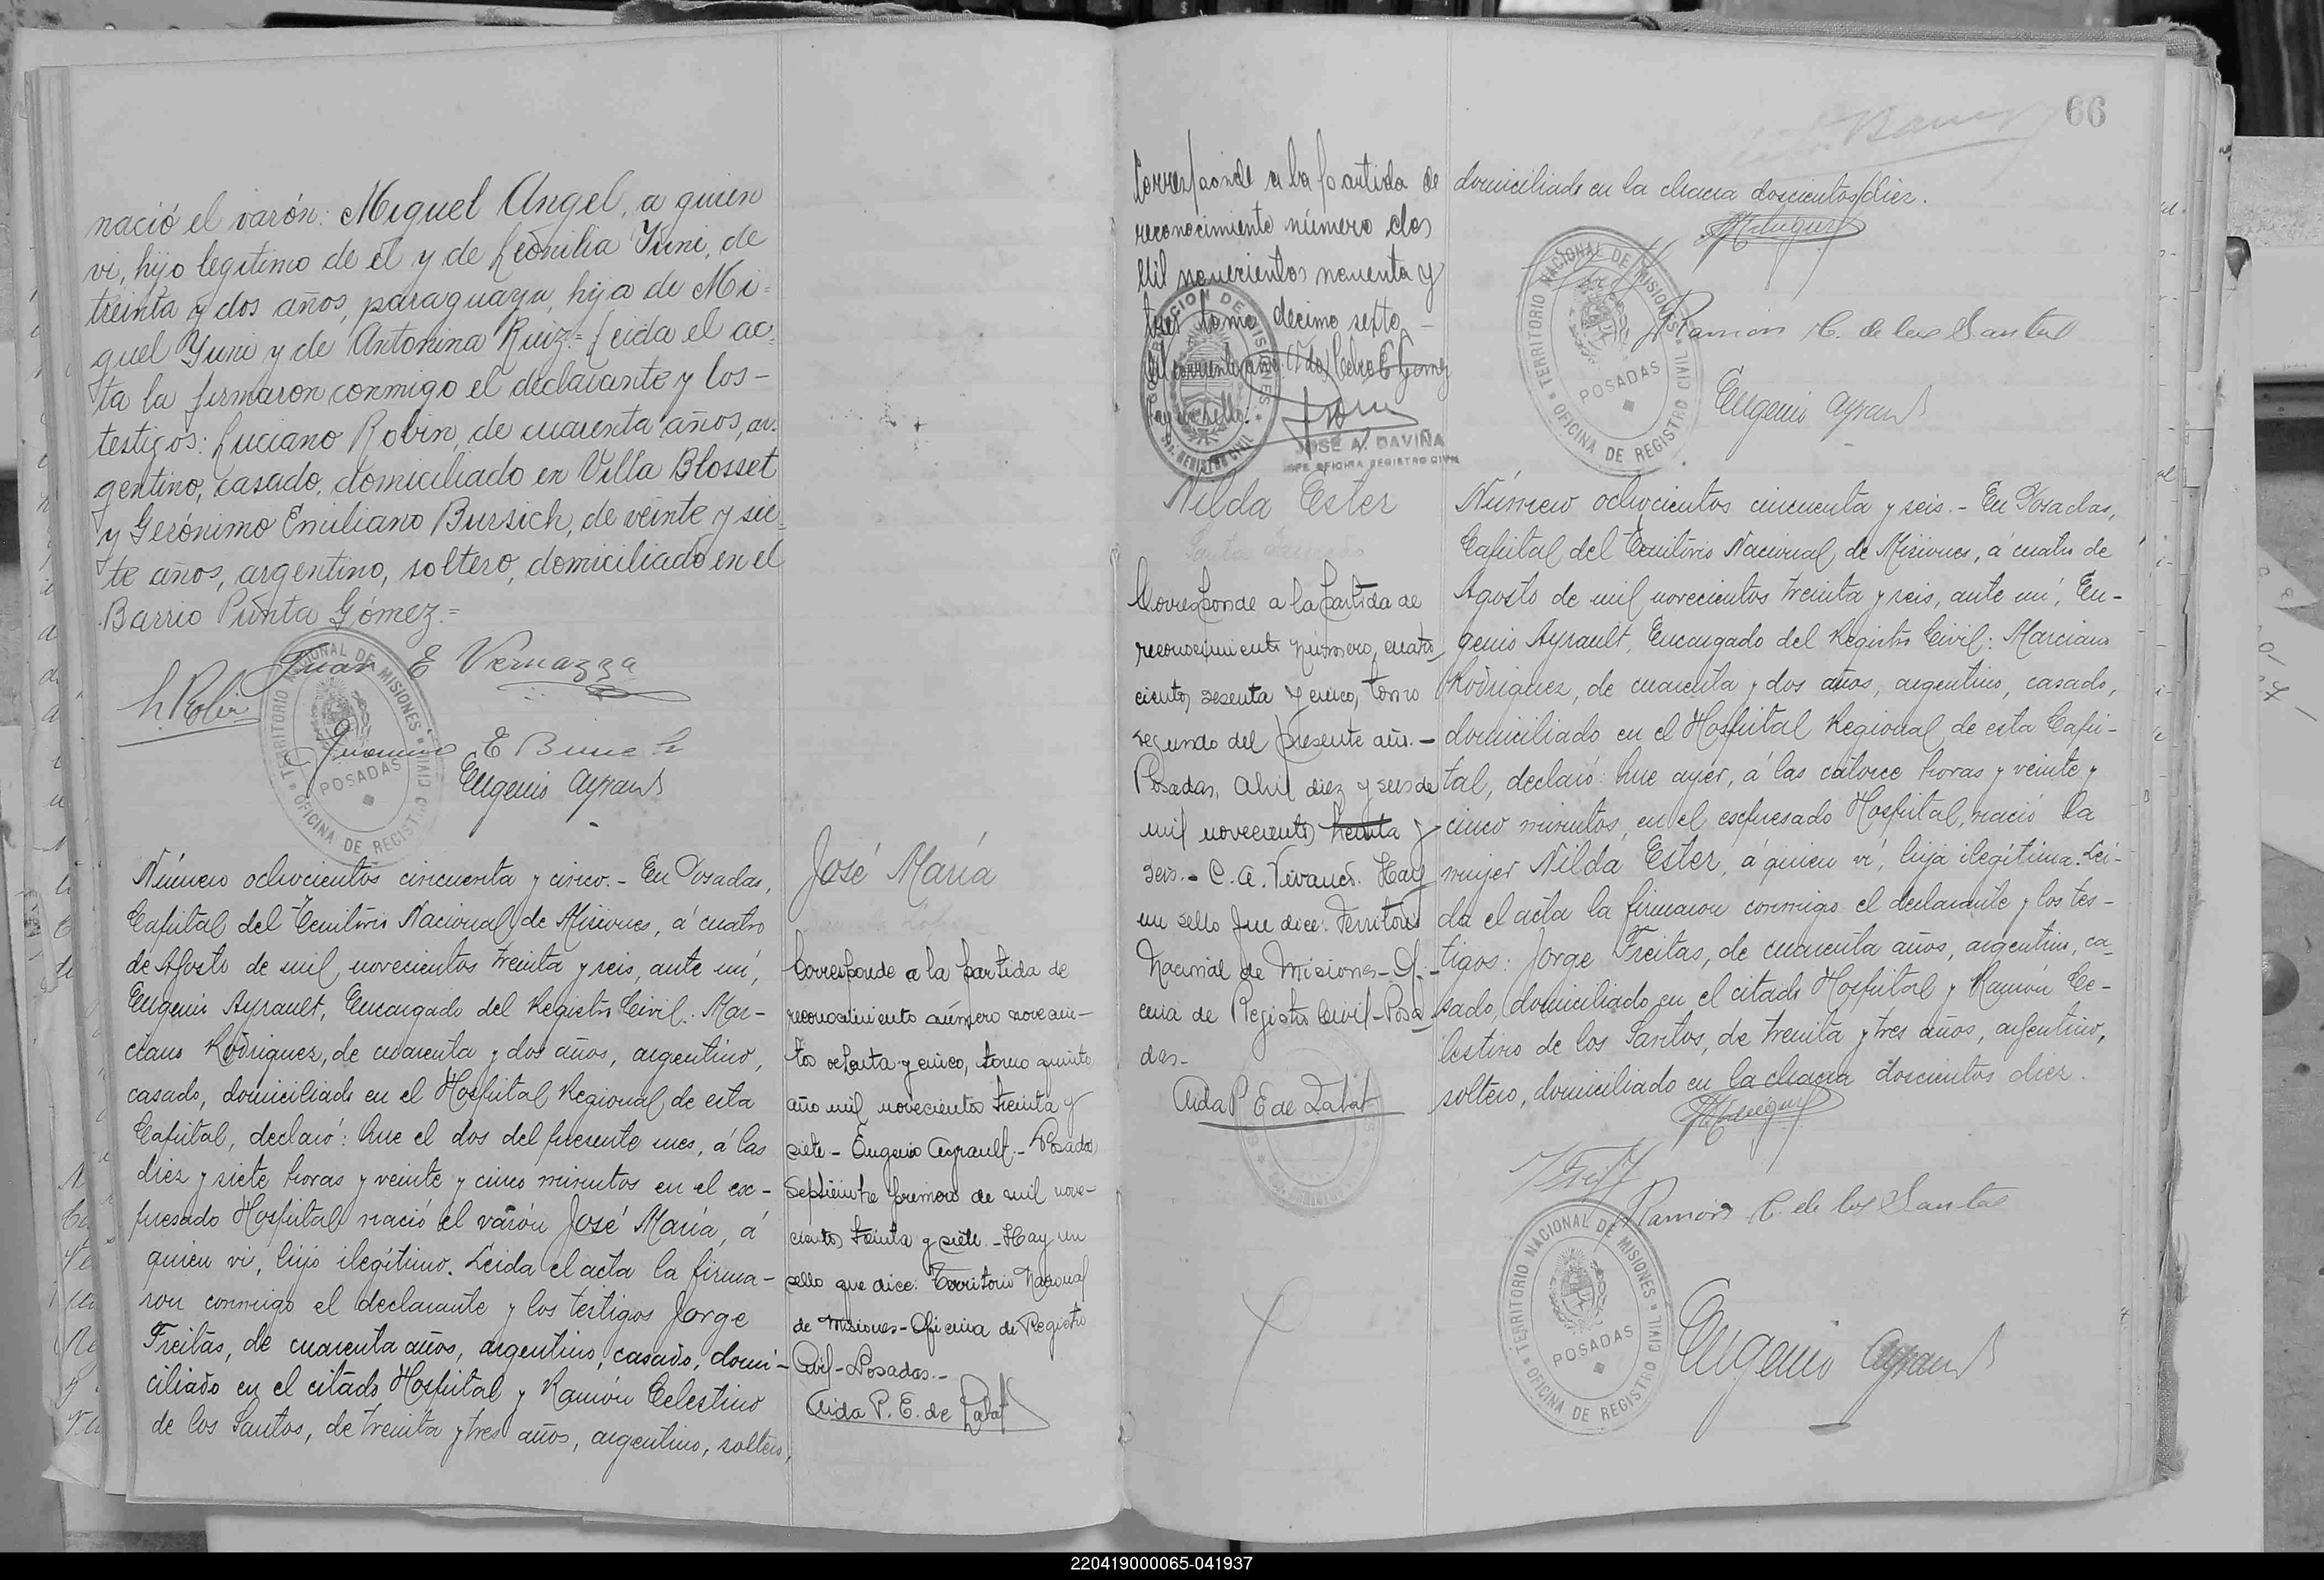 nació el varón: Miguel Angel, a quien
vi, hijo legitimo de él y de Leonilia Yuni, de
treinta y dos años, paraguaya, hija de Mi=
guel Yuni y de Antonina Ruiz.= Leida el ac=
ta la firmaron conmigo el declarante y los-
testigos: Luciano Robin, de cuarenta años, ar-
gentino, casado, domiciliado en Villa Blosset
y Gerónimo Emiliano Bursich, de veinte y sie=
te años, argentino, soltero, domiciliado en el
Barrio Punta Gómez.=
Juan E Vernazza
L Robin
E Bursich
Eugenio Ayrault
TERRITORIO NACIONAL DE MISIONES
POSADAS
OFICINA DE REGISTRO CIVIL
Número ochocientos cincuenta y cinco.- En Posadas,
Capital del Territorio Nacional de Misiones, á cuatro
de Agosto de mil novecientos treinta y seis, ante mí,
Eugenio Ayrault, Encargado del Registro Civil: Mar-
ciano Rodriguez, de cuarenta y dos años, argentino,
casado, domiciliado en el Hospital Regional de esta
Capital, declaró: Que el dos del presente mes, á las
diez y siete horas y veinte y cinco minutos en el ex-
presado Hospital nació el varón José María, á
quien vi, hijo ilegítimo. Leida el acta la firma-
ron conmigo el declarante y los testigos Jorge
Freitas, de cuarenta años, argentino, casado, domi-
ciliado en el citado Hospital y Ramón Celestino
de los Santos, de treinta y tres años, argentino, soltero,
José María
Corresponde a la partida de
reconocimiento número novecien-
tos ochenta y cinco, tomo quinto
año mil novecientos treinta y
siete - Eugenio Ayrault - Posadas
Septiembre primero de mil nove-
cientos treinta y siete - Hay un
sello que dice: Territorio Nacional
de Misiones - Oficina de Registro
Civil - Posadas.-
Aida P. E. de Labat
66
Corresponde a la partida de
reconocimiento número dos
mil novecientos noventa y
tres tomo décimo sexto
del corriente año (Fdo) Pedro E Gomez
Hay un sello.
JOSE A. DAVIÑA
JEFE OFICINA REGISTRO CIVIL
Nilda Ester
Corresponde a la partida de
reconocimiento número, cuatro-
cientos sesenta y cinco, tomo
segundo del presente año.-
Posadas, Abril diez y seis de
mil novecientos treinta y
seis.- C. A. Vivanco. Hay
un sello que dice: Territorio
Nacional de Misiones - Ofi-
cina de Registro Civil - Posa-
das-
Aida P. E de Labat
domiciliado en la chacra doscientos diez.
Ramón C. de los Santos
Eugenio Ayrault
TERRITORIO NACIONAL DE MISIONES
POSADAS
OFICINA DE REGISTRO CIVIL
Número ochocientos cincuenta y seis.- En Posadas,
Capital del Territorio Nacional de Misiones, á cuatro de
Agosto de mil novecientos treinta y seis, ante mí, Eu-
genio Ayrault, Encargado del Registro Civil: Marciano
Rodriguez, de cuarenta y dos años, argentino, casado,
domiciliado en el Hospital Regional de esta Capi-
tal, declaró: Que ayer, á las catorce horas y veinte y
cinco minutos, en el expresado Hospital, nació la
mujer Nilda Ester, á quien vi, hija ilegítima. Lei-
da el acta la firmaron conmigo el declarante y los tes-
tigos: Jorge Freitas, de cuarenta años, argentino, ca-
sado, domiciliado en el citado Hospital y Ramón Ce-
lestino de los Santos, de treinta y tres años, argentino,
soltero, domiciliado en la chacra doscientos diez.
Ramón C. de los Santos
TERRITORIO NACIONAL DE MISIONES
POSADAS
OFICINA DE REGISTRO CIVIL
Eugenio Ayrault
220419000065-041937